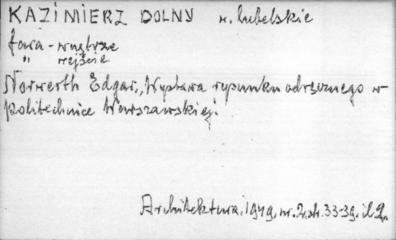 KAZIMIERZ DOLNY w. lubelskie
fara - wnętrze
" wejście
Norwerth Edgar, Wystawa rysunku odręcznego w
Politechnice Warszawskiej.
Architektura, 1949, nr. 2, str. 33-39. il.